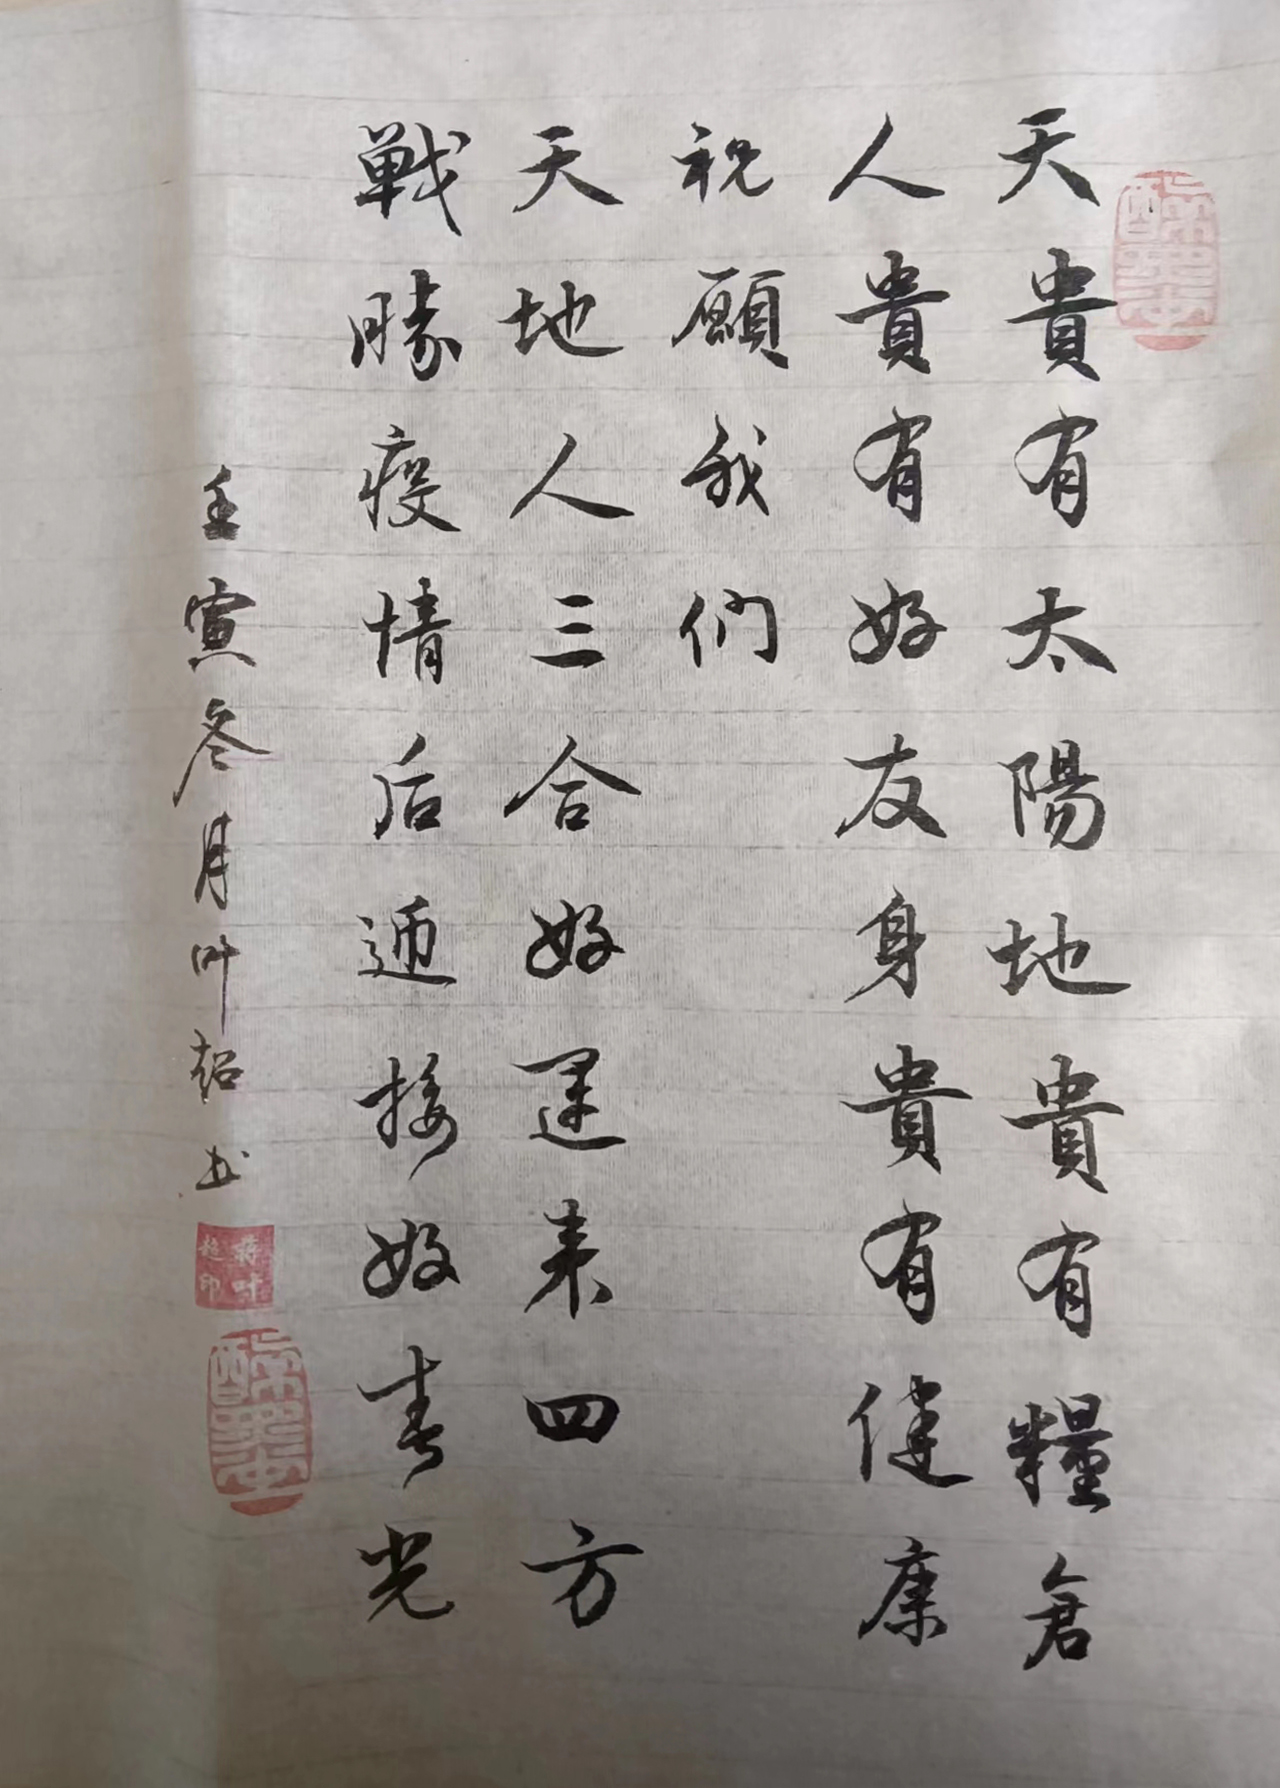 天貴有太陽地貴有糧倉
人貴有好友身貴有健康
祝願我们
天地人三合好運来四方
戰勝疫情后迊接好春光
壬寅冬月叶超书
蒋叶
超印